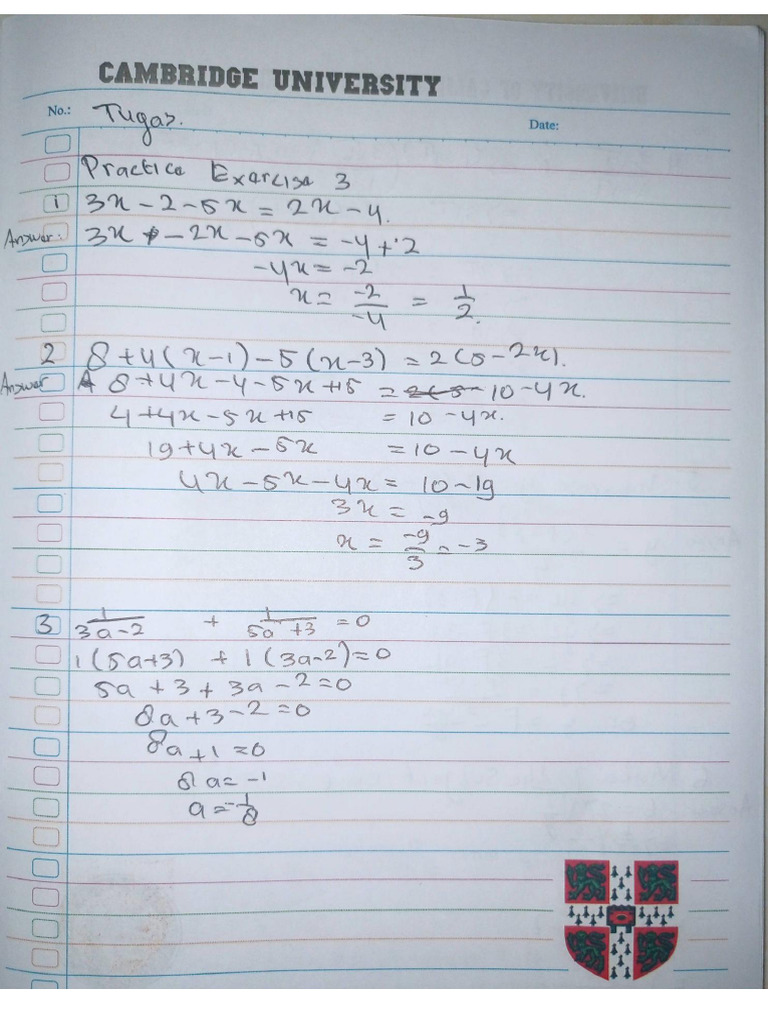 CAMBRIDGE UNIVERSITY
No.: Tugas. Date:
Practice Exercise 3
1 3x - 2 - 5x = 2x - 4.
Answer: 3x - 2x - 5x = -4 + 2
-4x = -2
x = -2/-4 = 1/2.
2 8 + 4(x - 1) - 5(x - 3) = 2(5 - 2x).
Answer 8 + 4x - 4 - 5x + 15 = 10 - 4x.
4 + 4x - 5x + 15 = 10 - 4x.
19 + 4x - 5x = 10 - 4x
4x - 5x - 4x = 10 - 19
3x = -9
x = -9/3 = -3
3 1/3a-2 + 1/5a+3 = 0
1(5a+3) + 1(3a-2) = 0
5a + 3 + 3a - 2 = 0
8a + 3 - 2 = 0
8a + 1 = 0
8a = -1
a = -1/8